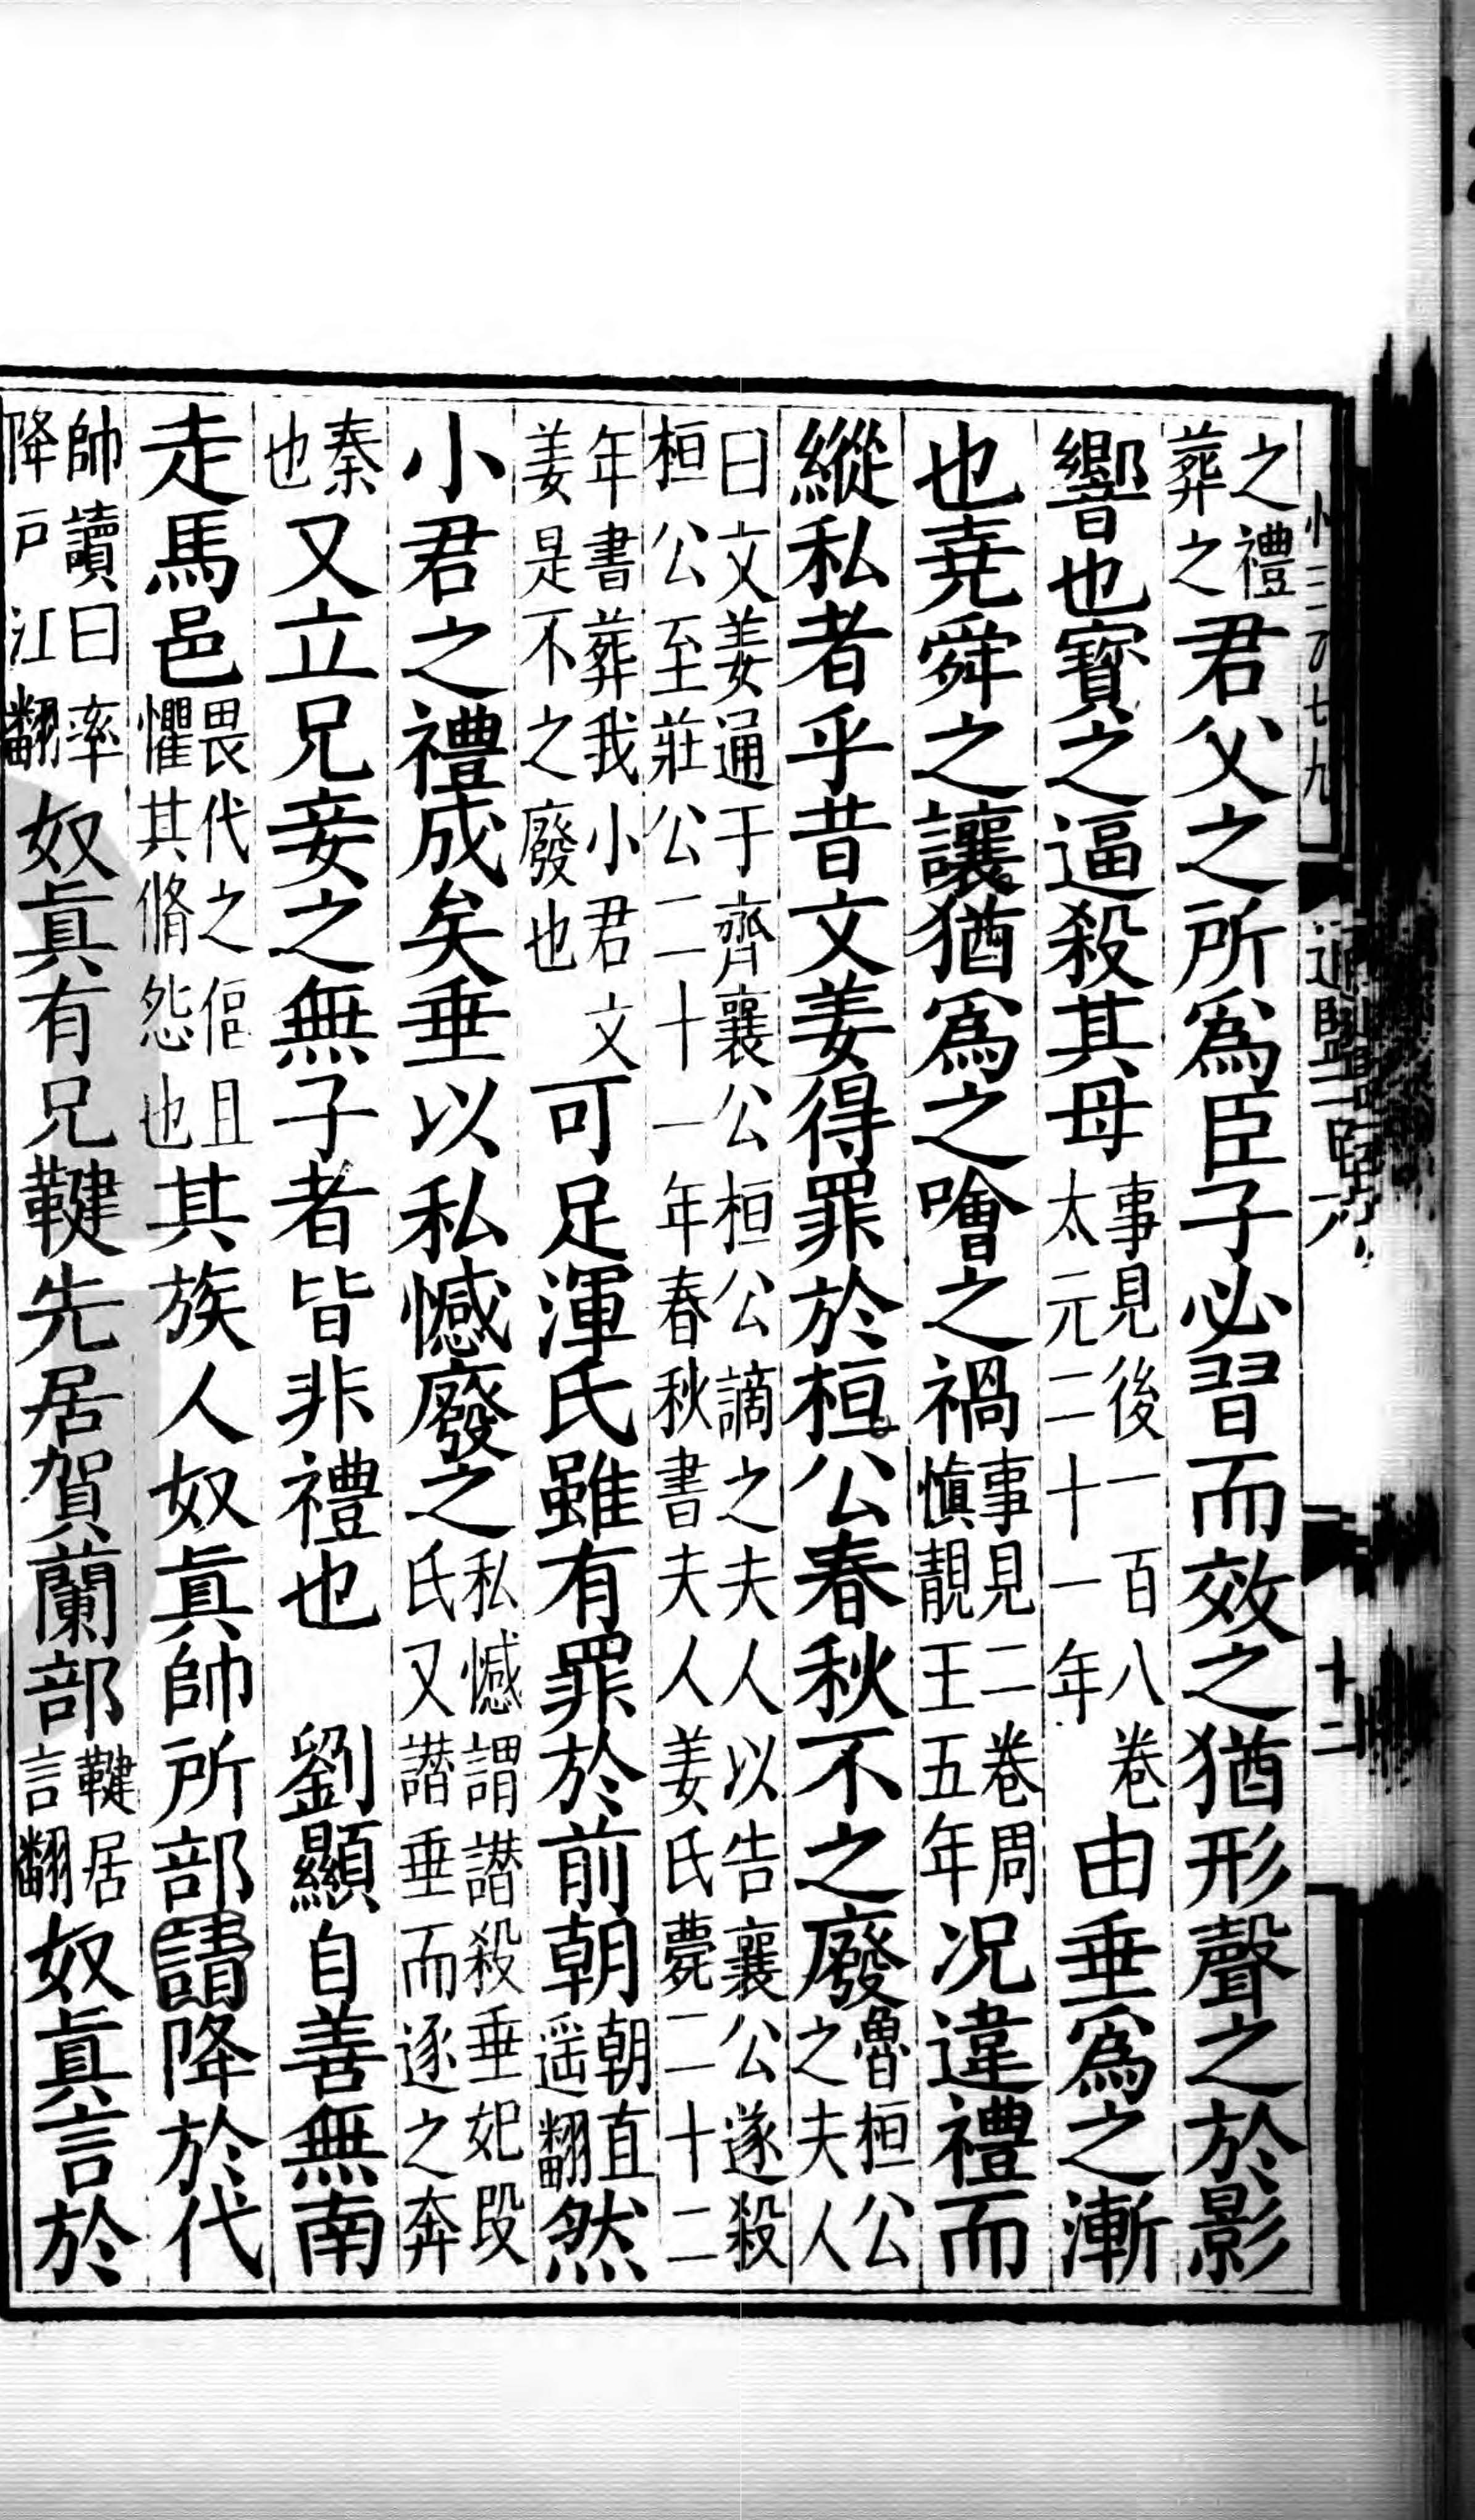 之禮葬之君父之所爲臣子必習而效之猶形聲之於影
響也寳之逼殺其母事見後一百八卷太元二十一年由垂爲之漸
也堯舜之讓猶爲之噲之禍事見二卷周愼靚王五年况違禮而
縱私者乎昔文姜得罪於桓公春秋不之廢魯桓公之夫人
曰文姜通于齊襄公桓公謫之夫人以告襄公遂殺桓公至莊公二十一年春秋書夫人姜氏薨二十二
年書葬我小君文姜是不之廢也可足渾氏雖有罪於前朝朝直遥翻然
小君之禮成矣垂以私憾廢之私憾謂譖殺垂妃段氏又譖垂而逐之奔
秦也又立兄妾之無子者皆非禮也 劉顯自善無南
走馬邑畏代之偪且懼其脩怨也其族人奴眞帥所部請降於代
帥讀曰率降戸江翻奴眞有兄鞬先居賀蘭部鞬居言翻奴眞言於
十二